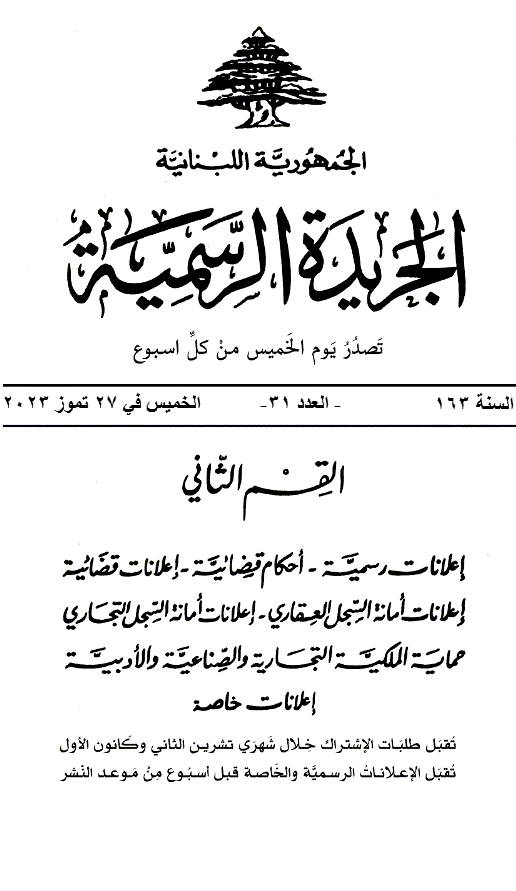 الجمهوريَّة اللبنانيَّة
الجَريدَة الرسَّميَّة
تَصدُرُ يَوم الخَميس منْ كلِّ اسبوع
السنة ١٦٣ - العدد ٣١- الخميس في ٢٧ تموز ٢٠٢٣
القِسْم الثّاني
إعلانات رسميَّة - أحكام قضائيَّة - إعلانات قضائية
إعلانات أمانة السِّجل العقاري - إعلانات أمانة السِّجل التجاري
حماية الملكيَّة التجارية والصِّناعيَّة والأدبيَّة
إعلانات خاصة
تُقبَل طلبَات الإشتراك خِلال شَهرَي تشرين الثاني وكَانون الأول
تُقبَل الإعلاناتُ الرسميَّة والخَاصة قبل أسبُوع مِنْ مَوعد النَشر